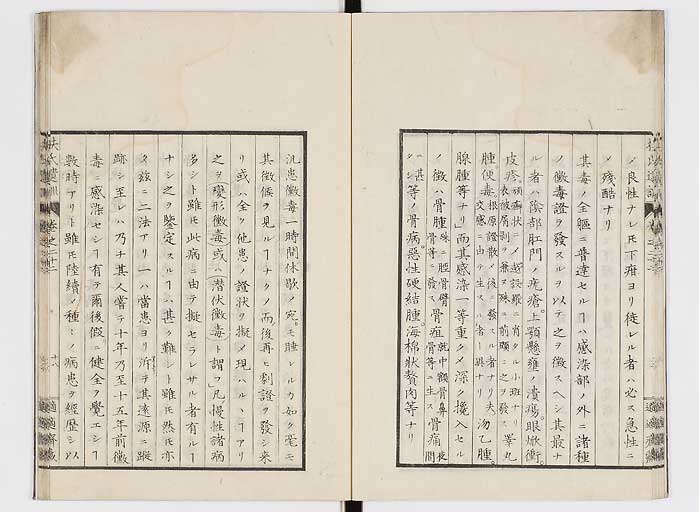 ノ良性ナレ𪜈下疳ヨリ徒レル者ハ必ス急性ニ
ノ残酷ナリ
其毒ノ全軀ニ普達セルヿハ感染部ノ外ニ諸種
ノ黴毒證ヲ發スルヲ以テ之ヲ徴スヘシ其最ナ
ル者ハ陰部肛門ノ疣瘡上顎懸雍ノ潰瘍眼焮衝
皮疹
腫便毒
腺腫等ナリ而其感染一等重クメ深ク攙入セル
ノ徴ハ骨腫
等ノ骨病惡性硬結腫海棉状贅肉等ナリ
汎患黴毒一時間休歇ノ宛モ睡レルカ如ク毫モ
其徴候ヲ見ルヿナクノ而後再ヒ劇證ヲ發シ来
リ或ハ全ク他患ノ證狀ヲ擬メ現ハルヽヿアリ
之ヲ變形黴毒或ハ潜伏黴毒ト謂フ凡慢性諸病
多シト雖𪜈此病ニ由テ擬セラレサル者有ルヿ
ナシ之ヲ鑒定スルヿハ甚タ難シト雖𪜈然𪜈亦
タ茲ニ二法アリ一ハ當患ヨリ泝テ其遠源ニ蹤
跡シ至レハ乃チ其人嘗テ十年乃至十五年前黴
毒ニ感染セシヿ有テ爾後假ニ健全ヲ覺エシヿ
數時アリト雖𪜈陸續ノ種ミノ病患ヲ經歴シ以
扶氏遺訓 卷之二十二
十六
適適齋藏